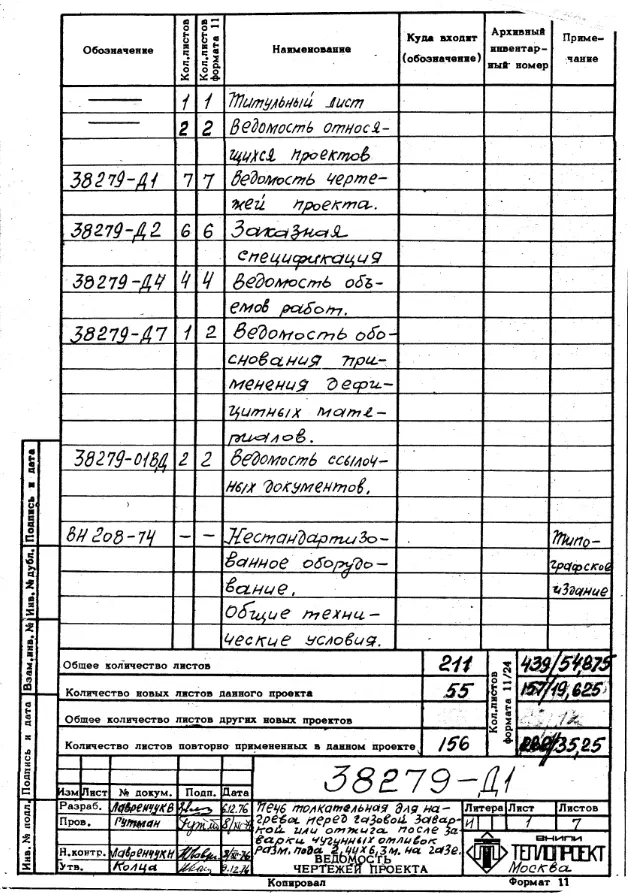 Обозначение
Кол.листов
Кол.листов формата 11
Наименование
Куда входит (обозначение)
Архивный инвентарный номер
Примечание
1 1 Титульный лист
2 2 Ведомость относя-
щихся проектов
38279-Д1 7 7 Ведомость черте-
жей проекта.
38279-Д2 6 6 Заказная
спецификация
38279-Д4 4 4 Ведомость объ-
емов работ.
38279-Д7 1 2 Ведомость обо-
снования при-
менения дефи-
цитных мате-
риалов.
38279-01ВД 2 2 Ведомость ссылоч-
ных документов.
ВН 208-74 - - Нестандартизо- Типо-
ванное оборудо- графское
вание. издание
Общие техни-
ческие условия.
Общее количество листов 211 439/54,875
Количество новых листов данного проекта 55 157/19,625
Общее количество листов других новых проектов
Количество листов повторно примененных в данном проекте 156 /35,25
Кол.листов формата 11/24
Подпись и дата
Инв. № дубл.
Взам.инв. №
Подпись и дата
Инв. № подл.
38279-Д1
Изм Лист № докум. Подп. Дата
Разраб. Лавренчук В 6.12.76
Пров. Гутман
Н.контр. Лавренчук Н
Утв. Колца 9.12.76
Печь толкательная для на-
грева перед газовой завар-
кой или отжига после за-
варки чугунных отливок
разм. пода 2,44х6,3м. на газе.
ВЕДОМОСТЬ
ЧЕРТЕЖЕЙ ПРОЕКТА
Литера Лист Листов
И 1 7
ВНИПИ
ТЕПЛОПРОЕКТ
Москва
Копировал Формат 11